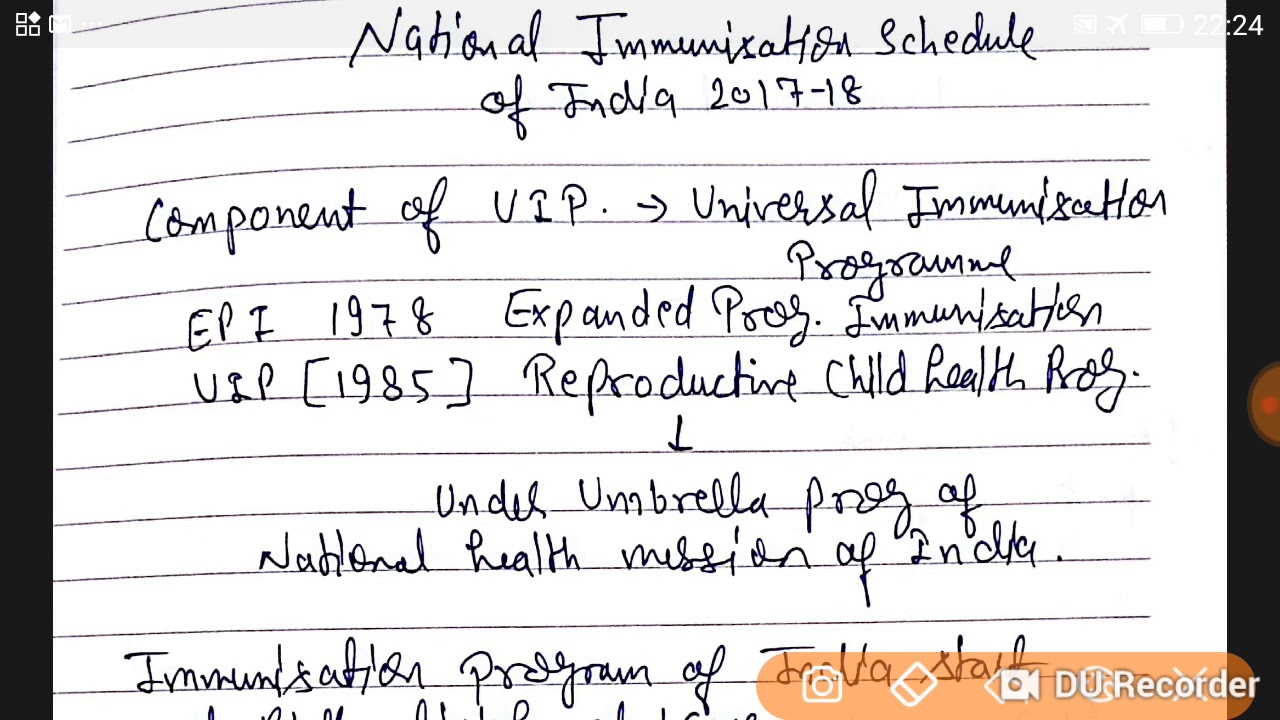 22:24
National Immunisation Schedule
of India 2017-18
Component of UIP. → Universal Immunisation
Programme
EPI 1978 Expanded Prog. Immunisation
UIP [1985] Reproductive Child health Prog.
↓
Under Umbrella prog of
National health mission of India.
Immunisation program of India start
DU Recorder